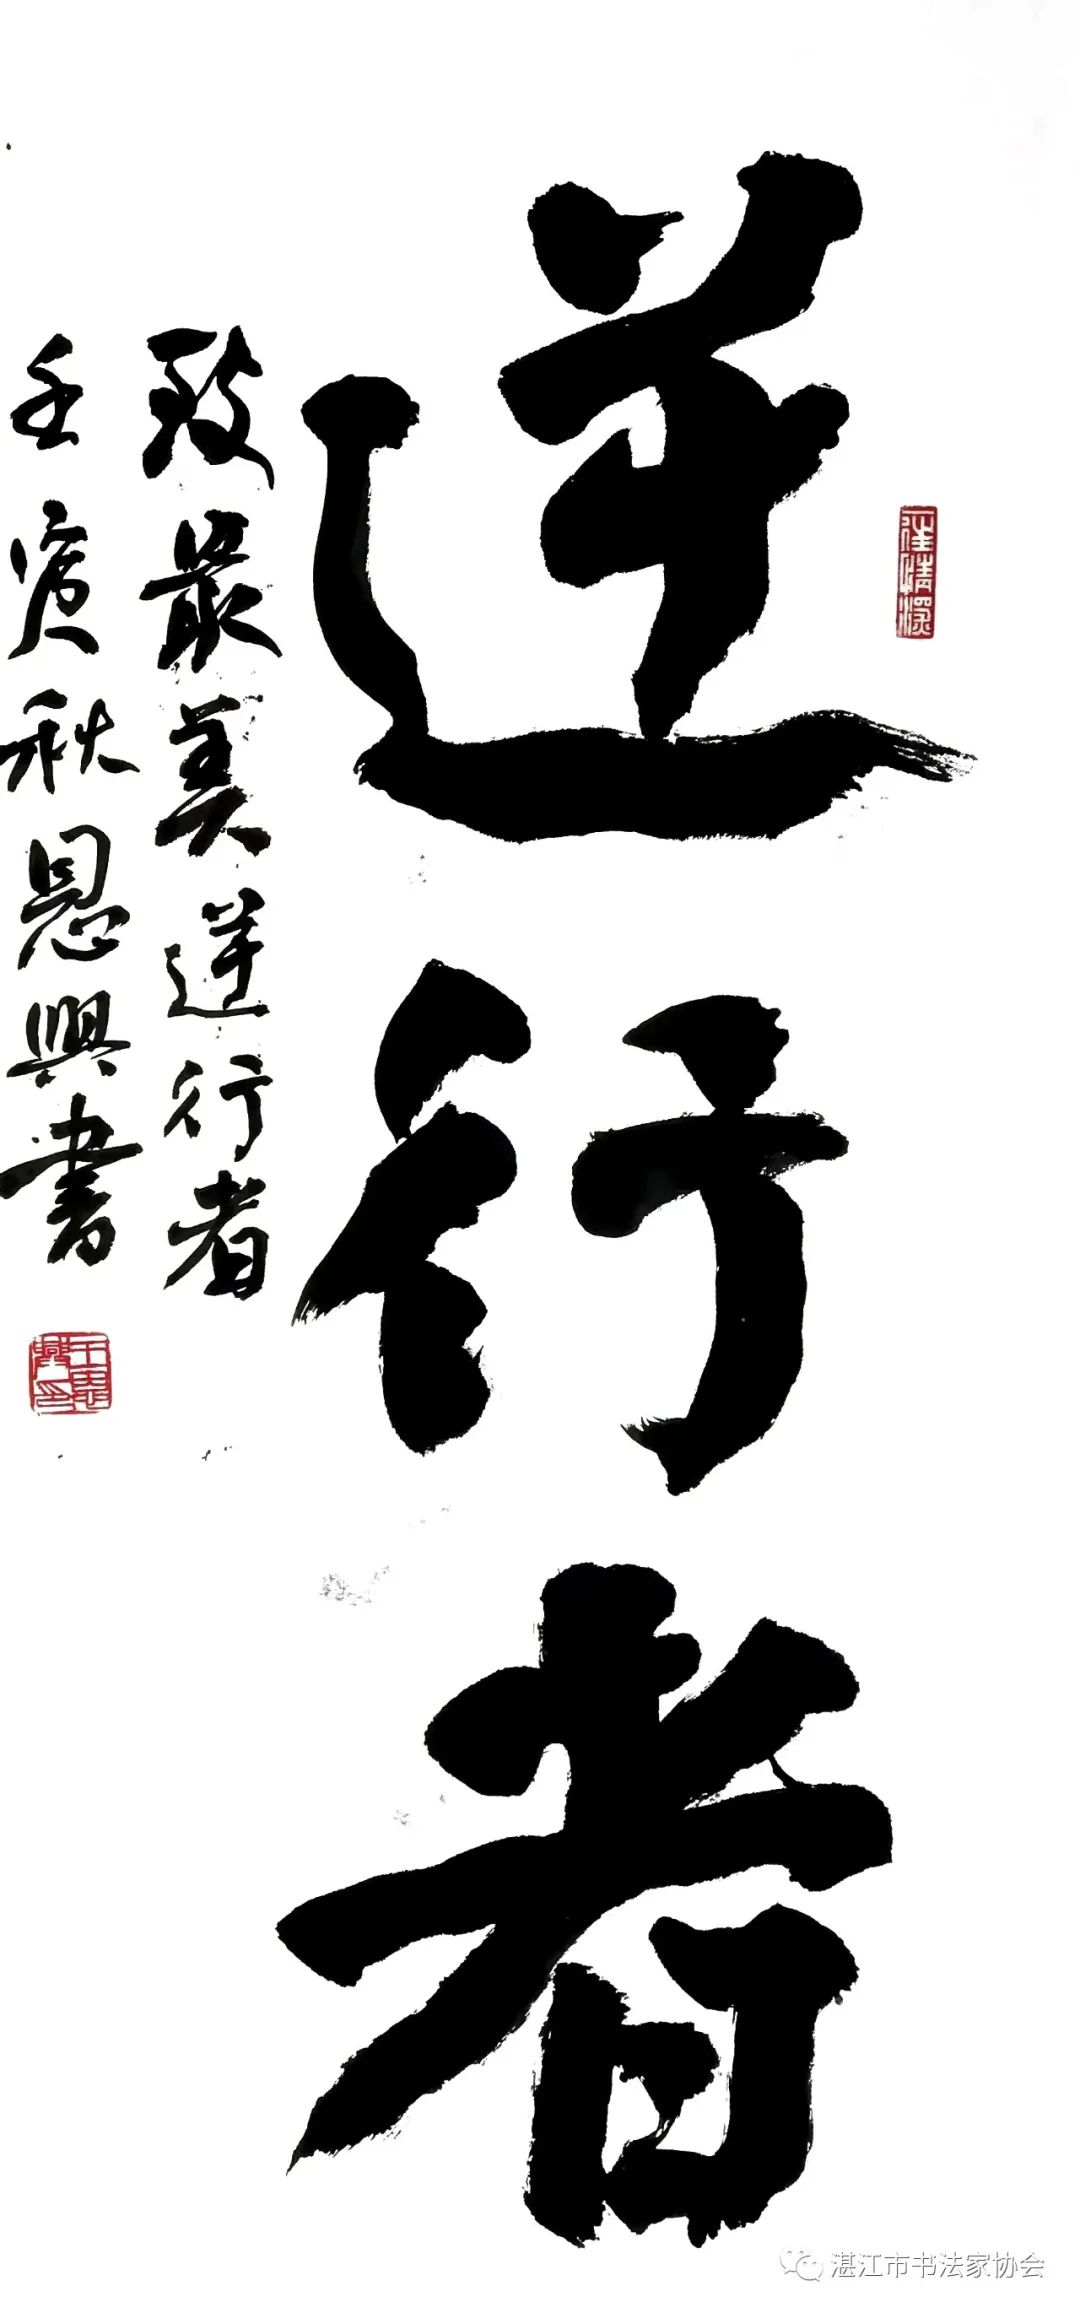 逆行者
致最美逆行者
壬寅秋恩興書
湛江市书法家协会